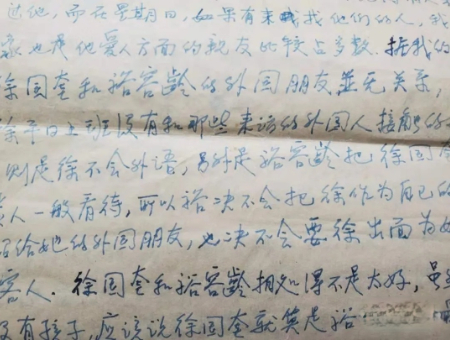 过他,而在星期日,如果有来找他们的人,我
也是他爱人方面的亲友比较占多数.据我的
徐国奎和裕容龄的外国朋友並无关系,
徐平日上班没有和那些来访的外国人接触的
则是徐不会外语,另外是裕容龄把徐国奎
人一般看待,所以裕决不会把徐作为自己的
绍给她的外国朋友,也决不会要徐出面为她
客人.徐国奎和裕容龄相处得不是太好,虽
没有孩子,应该说徐国奎就算是裕